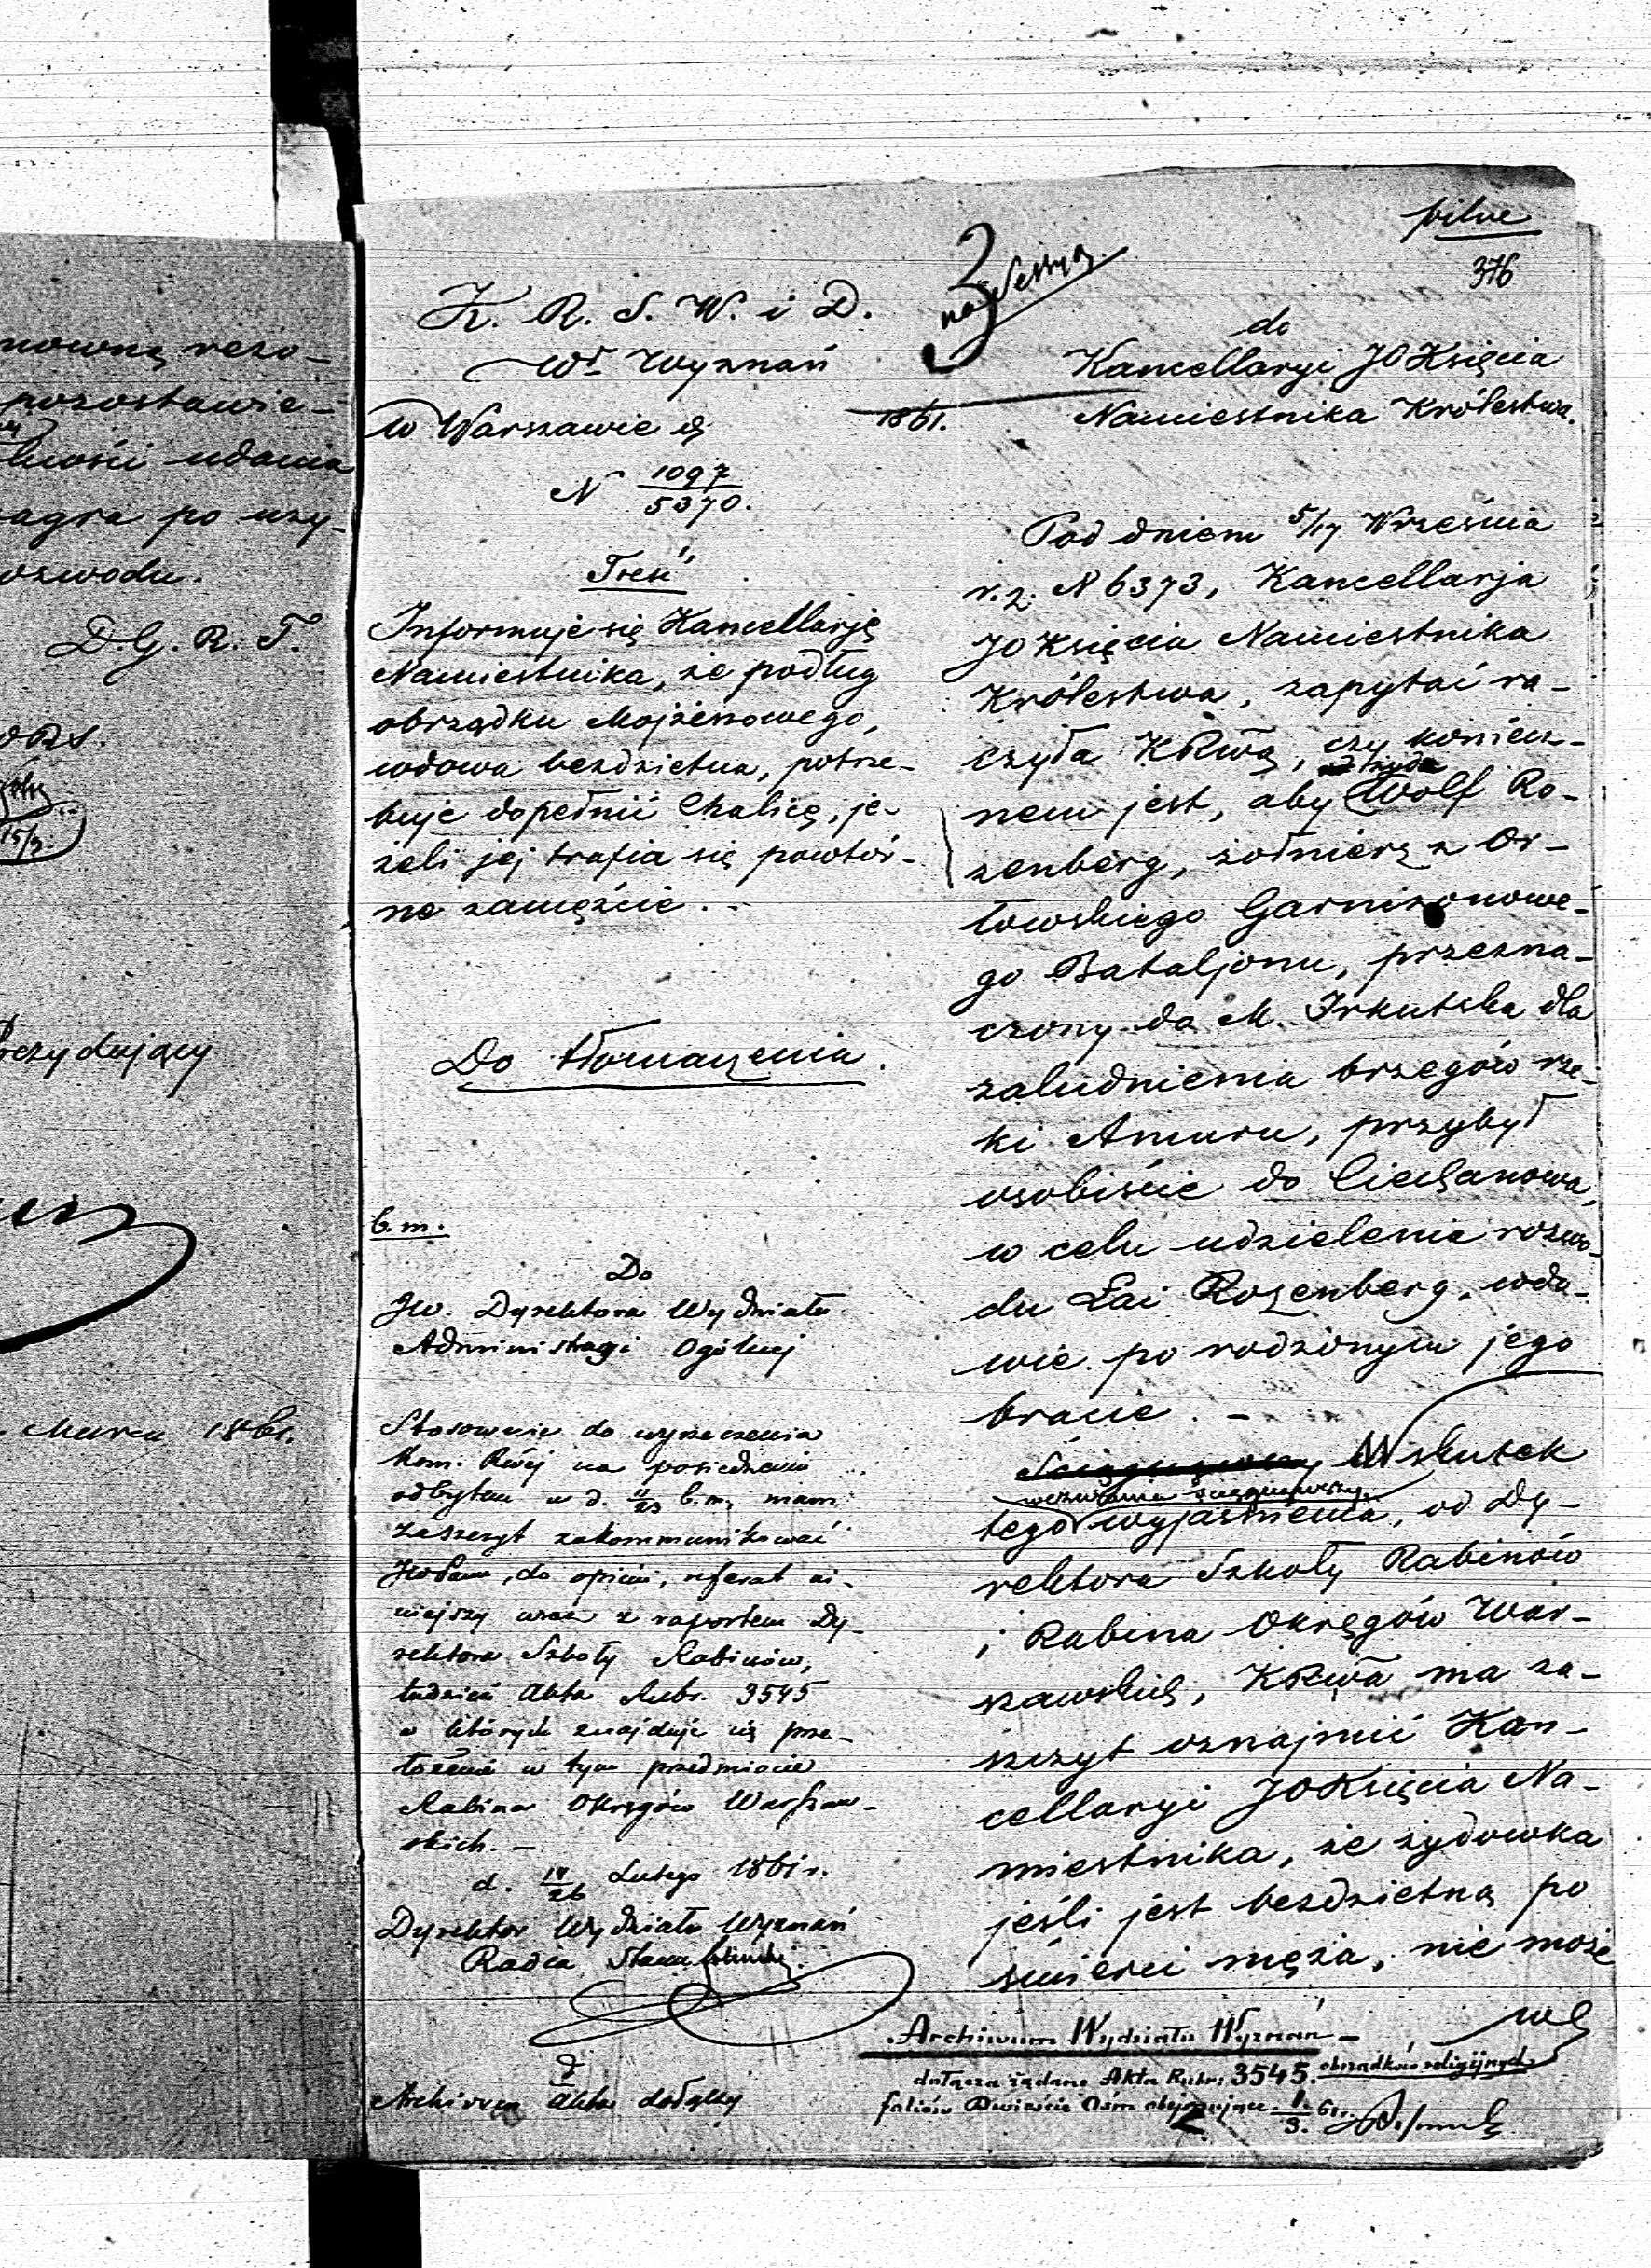 nowną rezo-
pozostawie-
liwości udania
po uzy-
ozwodu.
D. G. R. T.
rezydujący
Marca 1861.
pilne
376
3
na Sessyą
K. R. S. W. i D.
Wł Wyznań
w Warszawie d
1861.
N 1097/5370.
Treść
Informuje się Kancellarję
Namiestnika, że podług
obrządku Mojżeszowego,
wdowa bezdzietna, potrze-
buje dopełnić Chalicę, je-
żeli jej trafia się powtór-
ne zamęźcie. -
Do tłomaczenia.
b. m.
Do
JW. Dyrektora Wydziału
Administracji Ogólnej
Stosownie do wyrzeczenia
Kom. Rząj na posiedzeniu
odbytem w d. 11/23 b. m, mam
zaszczyt zakommunikować
JWPanu, do opinii, referat ni-
niejszy wraz z raportem Dy-
rektora Szkoły Rabinów,
tudzież Akta Rubr. 3545
w których znajduje się prze-
łożenie w tym przedmiocie
Rabina Okręgów Warszaw-
skich. -
d. 14/26 Lutego 1861 r.
Dyrektor Wydziału Wyznań
Radca Stanu
Archiwum Akta dołączy
do
Kancellaryi JO Księcia
Namiestnika Królestwa.
Pod dniem 5/17 Września
r. z. N 6373, Kancellarja
JO Księcia Namiestnika
Królestwa, zapytać ra-
czyła KRWą, czy koniecz-
nem jest, aby żyd Wolf Ro-
zenberg, żołnierz z Or-
łowskiego Garnizonowe-
go Bataljonu, przezna-
czony do M. Irkutska dla
zaludnienia brzegów rze-
ki Amuru, przybył
osobiście do Ciechanowa,
w celu udzielenia rozwo-
du Łai Rozenberg, wdo-
wie po rodzonym jego
bracie. -
Ściągnąwszy Wskutek
wezwania ściągnąwszy
tego wyjaśnienia, od Dy-
rektora Szkoły Rabinów
i Rabina Okręgów War-
szawskich, KRWa ma za-
szczyt oznajmić Kan-
cellaryi JO Księcia Na-
miestnika, że żydówka
jeśli jest bezdzietną po
śmierci męża, nie może
Archiwum Wydziału Wyznań -
dołącza żądane Akta Rubr: 3545. obrządków religijnych
foliów Dwieście Ośm obejmujące. 1/3. 61 r.